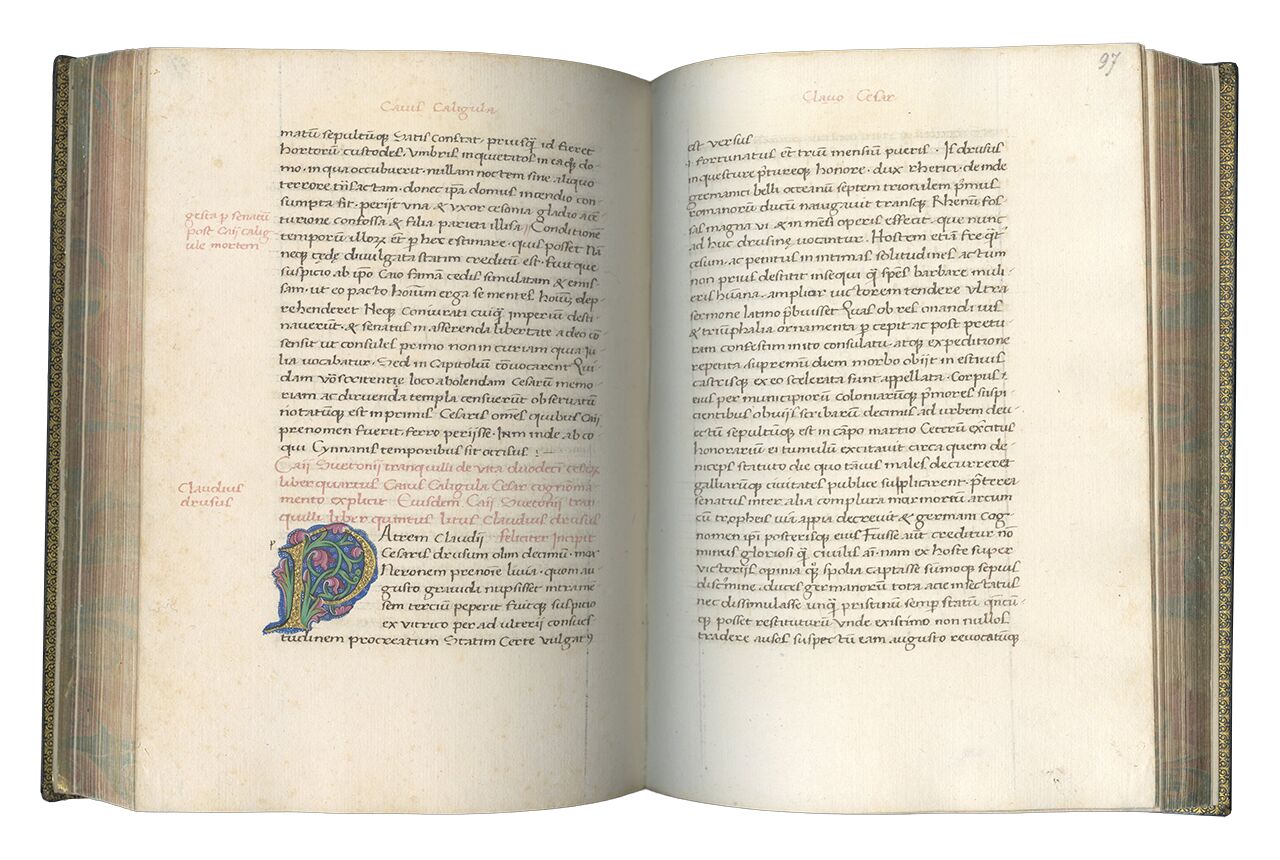 Caius Caligula
matū sepultūq; Satis Constat. priusq̄ id fieret
hortorū custodes. Umbris inquietatos in ea q̨; do-
mo. in qua occubuerit. nullam noctem sine aliquo
terrore trāsactam. donec ip̄a domus incendio con-
sumpta sit. perijt vna & vxor cesonia gladio a cē
turione confossa & filia parieti illisa Conditionē
temporū illoꝝ et p̄ hec estimare. quis posset Nā
neq; cęde divulgata statim creditū est. fuit que
suspicio ab ip̄o Caio famā cedis simulatam & emis-
sam. ut eo pacto hoīum erga se mentes dep-
rehenderet Neq; Coniurati cuiq̄ imperiū desti-
naverūt. & senatus in asserenda libertate adeo cō
sensit ut consules primo non in curiam quia Iu-
lia vocabatur. Sed in Capitoliū cōvocarent Qui
dam loco abolendam Cesarū memo-
riam ac diruenda templa censuerūt observatū
notatūq; est in primis Cesaris om̄es quibus Caij
prenomen fuerit. ferro perijsse. Iam inde ab eo
qui Cynnanis temporibus sit occisus :
Caij Suetonij tranquilli de vita duodeci cesaꝝ
liber quartus Caius Caligula Cesar cognomi-
mento explicit Eiusdem Caij Suetonij tran
quilli liber quintus Claudius drusus
Patrem Claudij feliciter Incipit
Cesaris drusum olim decimū. mox
Neronem prenoīe livia. quom au-
gusto gravida nupsisset intra mē
sem tercium peperit fuitq; suspicio
ex vitrico per adulterij consue
tudinem procreatum Statim Certe vulgatꝰ
gesta p senatū
post Caij Calig
ule mortem
Claudius
drusus
p
97
Claυo Cesar
est versus
fortunatis et triū mensium pueris. Is drusus
in questure p̄tureq; honore. dux rhetici. deinde
germanici belli oceanū septemtrionalem p̄mus
romanorū ducū navigavit transq; Rhenū fos
sas magna vi & in mēsi operis effecit. que nunc
ad huc drusinę vocantur. Hostem etiā freq̄t
cesum. ac penitus in intimas solitudines actum
non prius destitit insequi q̄ spēs barbare muli-
eris hūana. amplior victorem tendere vltra
sermone latino p̄buisset Quas ob res onandi ius
& triūphalia ornamenta percepit ac post pretu-
ram confestim inito consulatu. atq; expeditione
repetita supremū diem morbo obijt in estivis
castrisq; ex eo scelerata sunt appellata. Corpus
eius per municipiorū coloniarūq; p̄mores suspi-
cientibus obvijs scribarū decurijs ad urbem dev
ectū sepultūq; est in cāpo martio Ceterū excitus
honorariū ei tumulū excitavit circa quem de
inceps statuto die quo tānis miles decurreret
galliarūq; civitates publice supplicarent. p̄terea
senatus inter alia complura marmoreū arcum
cū tropheis via appia decrevit & germani Cog-
nomen ip̄i posterisq; eius Fuisse aūt creditur no
minus gloriosi q̄ civilis aī. nam ex hoste super
victorijs opima q̨; spolia captasse sūmoq; sepius
discrimine. duces germanorū tota acie insectatus
nec dissimulasse vnq̄ pristinū semp statū
q; posset restituturū Vnde existimo non nullos
tradere ausos suspectū eam augusto revocatūq;